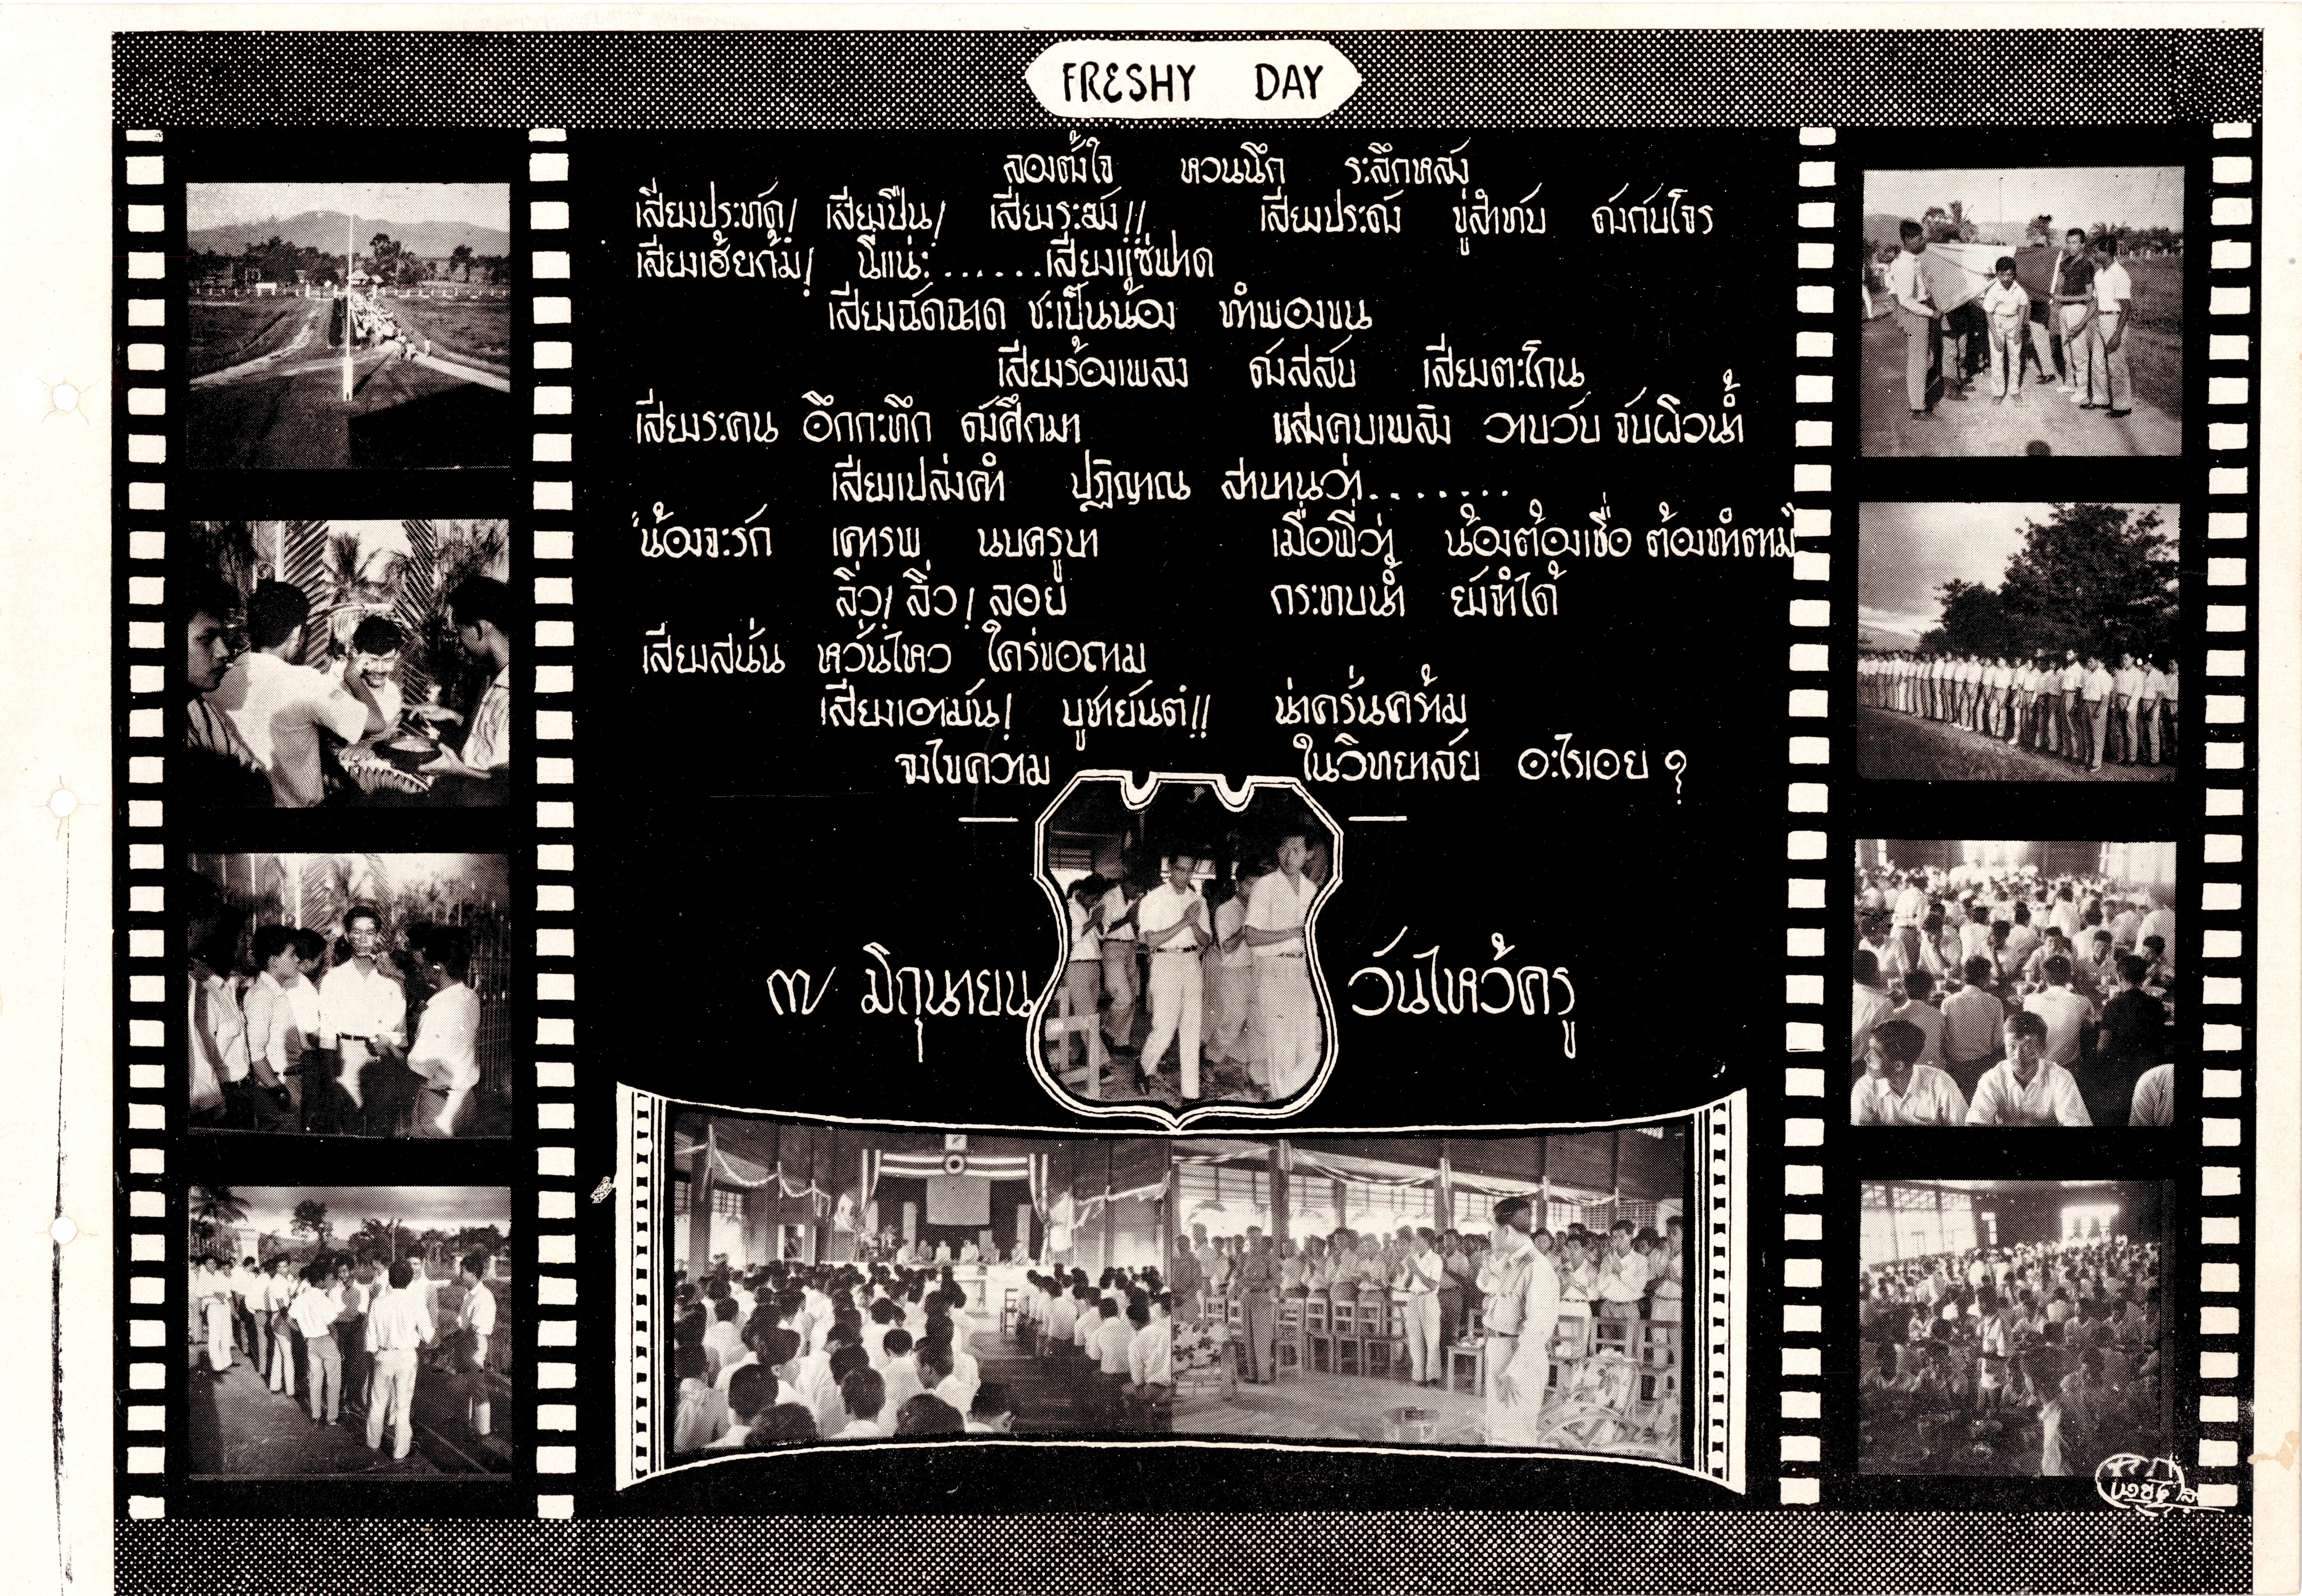 FRESHY DAY
ลองตั้งใจ หวนนึก ระลึกหลัง
เสียงประทัด! เสียงปืน! เสียงระฆัง!! เสียงประดัง ขู่สำทับ ดังกับโจร
เสียงเฮ้ยก้ม! นี่แน่ะ......เสียงแซ่ฟาด
เสียงฉัดฉาด ชะเป็นน้อง ทำพองขน
เสียงร้องเพลง ดังสลับ เสียงตะโกน
เสียงระคน อึกกะทึก ดังศึกมา แสงคบเพลิง วาบวับ จับผิวน้ำ
เสียงเปล่งคำ ปฏิญาณ สาบานว่า........
"น้องจะรัก เคารพ นบครูบา เมื่อพี่ว่า น้องต้องเชื่อ ต้องทำตาม"
ลิ่ว! ลิ่ว! ลอย กระทบน้ำ ยังจำได้
เสียงสนั่น หวั่นไหว ใคร่ขอถาม
เสียงเอามัน! บูชายันต์!! น่าครั่นคร้าม
จงไขความ ในวิทยาลัย อะไรเอย ?
๗ มิถุนายน วันไหว้ครู